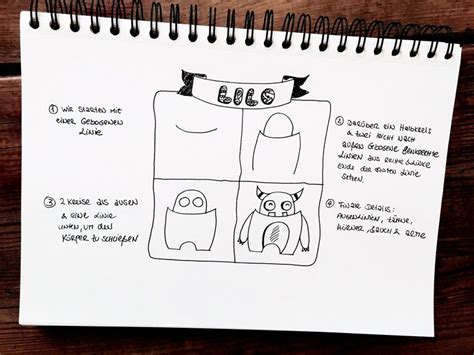 LILO
① Wir starten mit
einer gebogenen
Linie
② Darüber ein Halbkreis
& zwei nicht nach
außen gebogene senkrechte
Linien aus
Ende der ersten Linie
setzen.
③ 2 Kreise als Augen
& eine Linie
unten, um den
Körper zu schließen
④ Finale Details:
Augenlinien, Zähne,
Hörner, Bauch & Arme